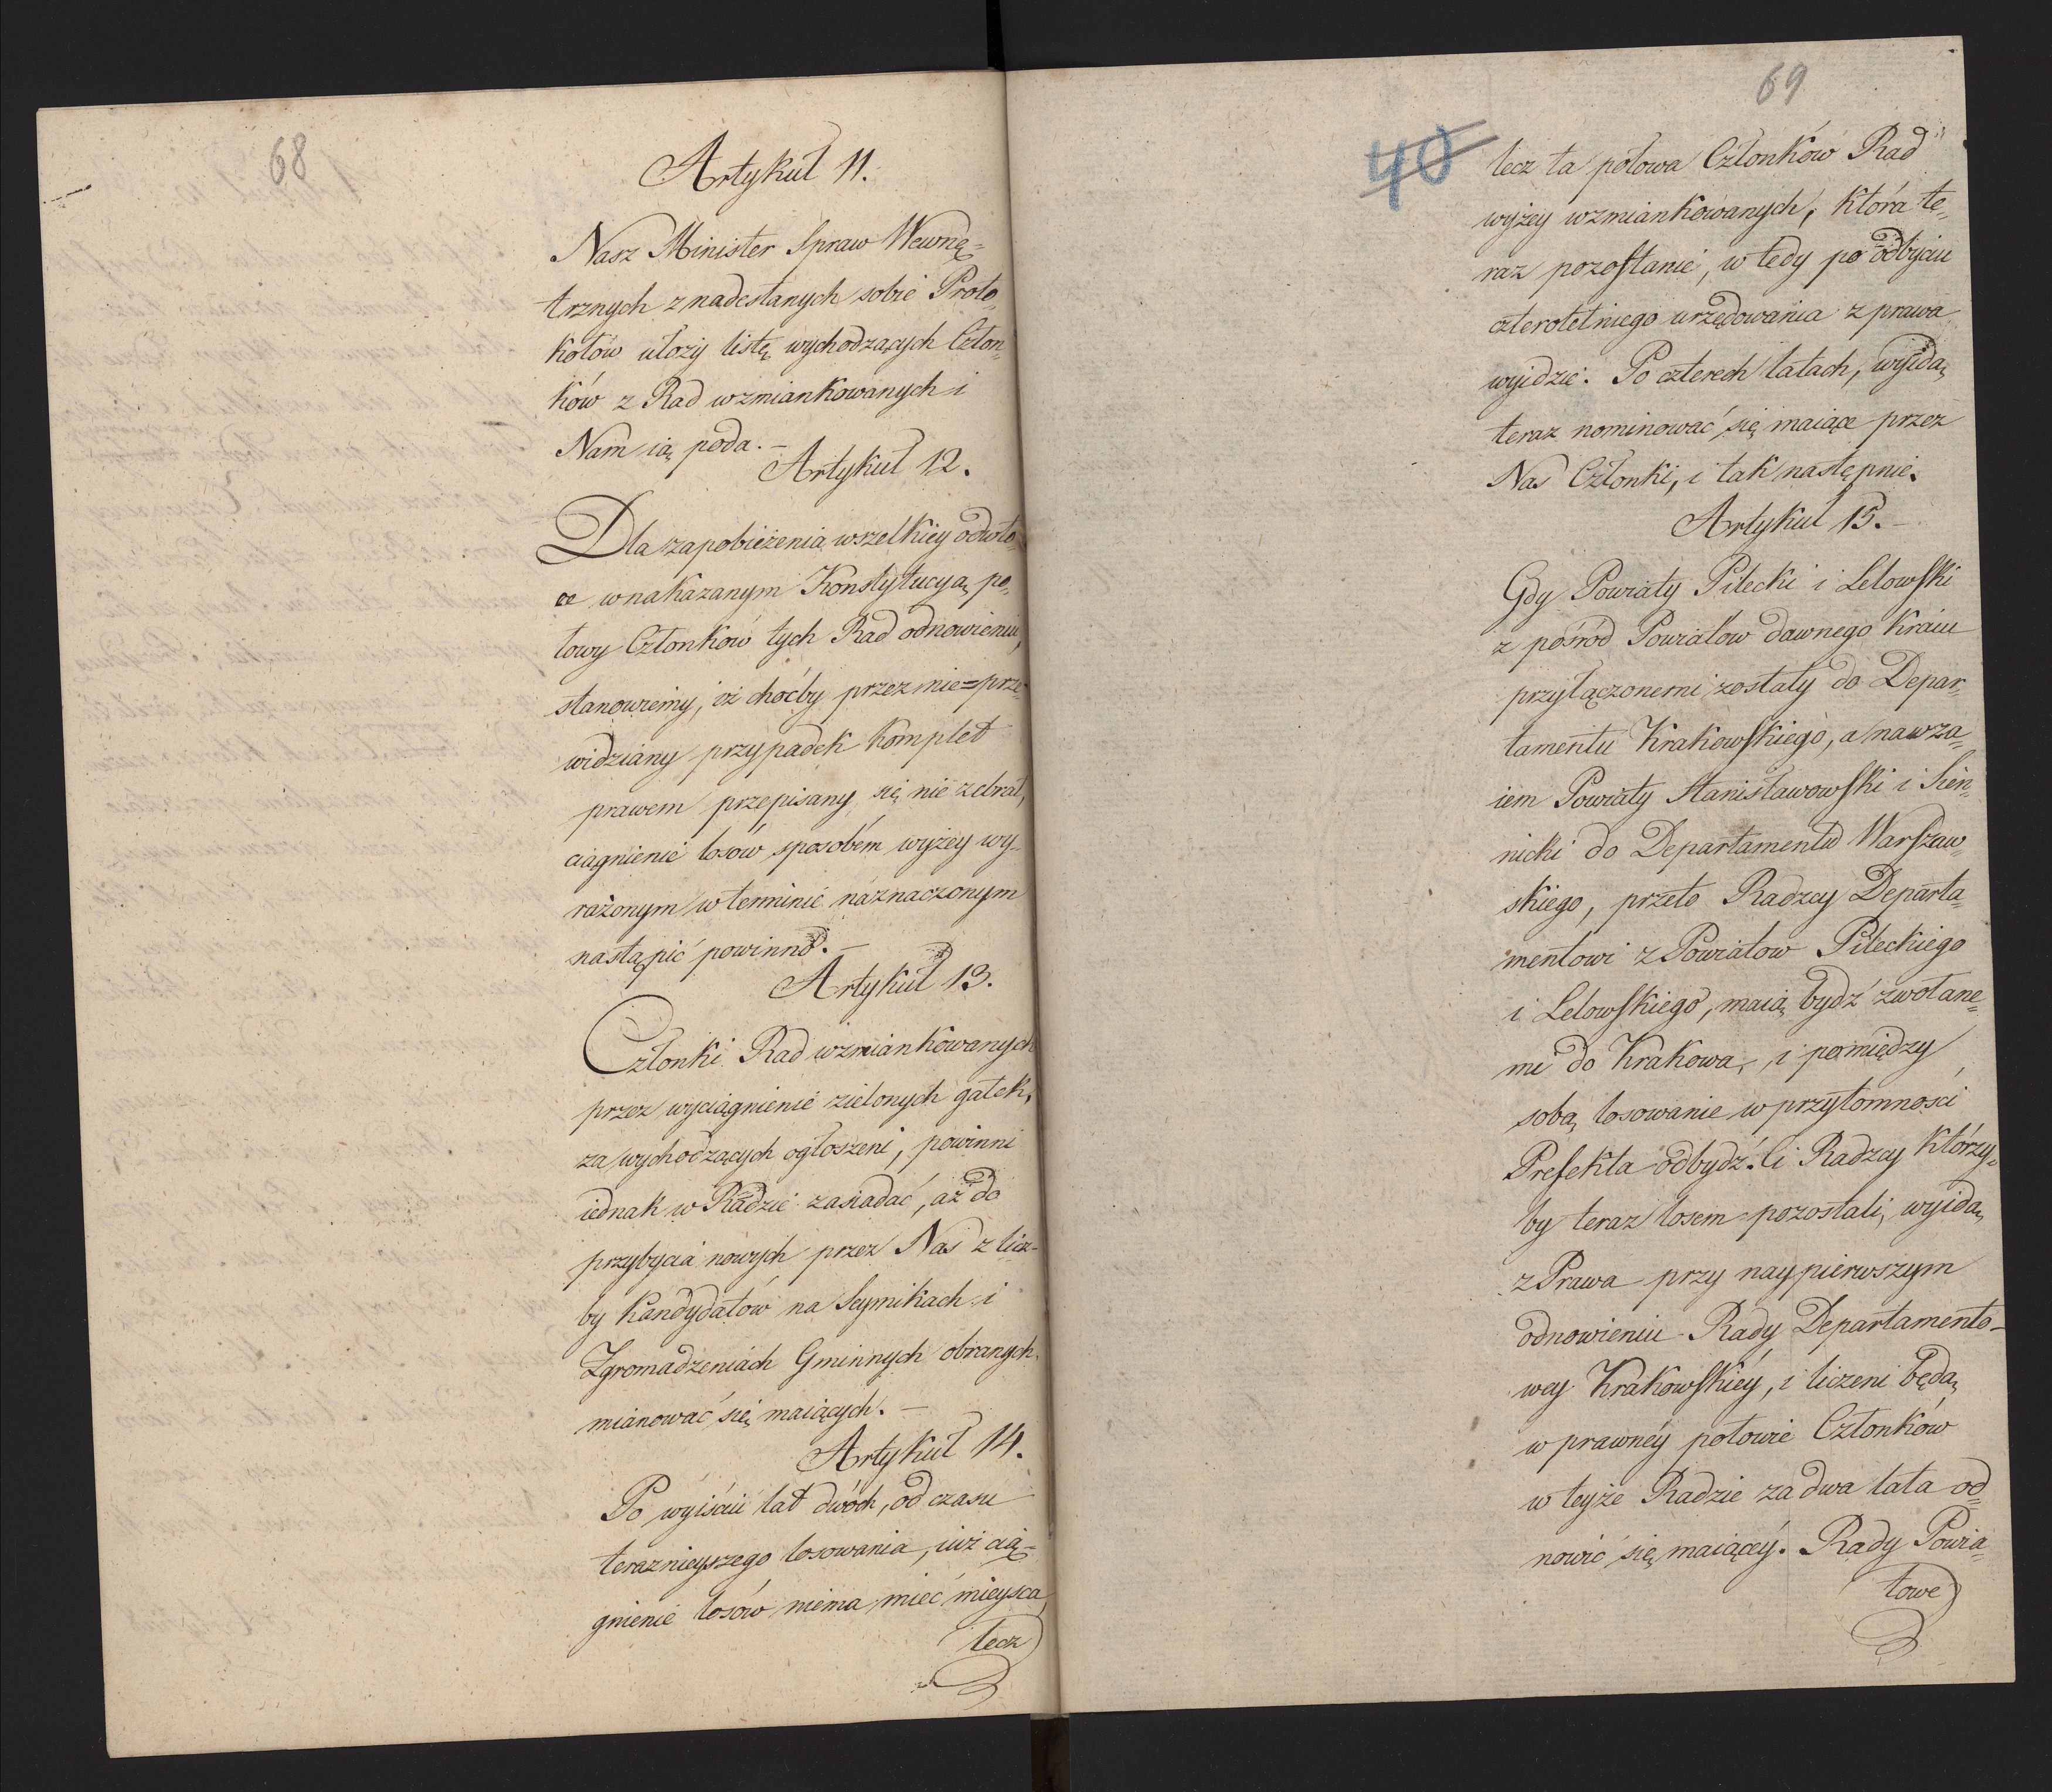 68
Artykuł 11.
Nasz Minister Spraw Wewnę=
trznych z nadesłanych sobie Proto=
kołów ułoży listę wychodzących Człon=
ków z Rad wzmiankowanych i
Nam ią poda. –
Artykuł 12.
Dla zapobieżenia wszelkiey odwło=
ce w nakazanym Konstytucyą po=
łowy Członków tych Rad odnowieniu,
stanowiemy, iż choćby przez nie=prze=
widziany przypadek komplet
prawem przepisany się nie zebrał,
ciągnienie losów sposobem wyżey wy=
rażonym w terminie naznaczonym
nastąpić powinno. –
Artykuł 13.
Członki Rad wzmiankowanych
przez wyciągnienie zielonych gałek,
za wychodzących ogłoszeni, powinni
iednak w Radzie zasiadać, aż do
przybycia nowych przez Nas z licz=
by Kandydatów na Seymikach i
Zgromadzeniach Gminnych obranych,
mianować się maiących. –
Artykuł 14.
Po wyiściu lat dwóch, od czasu
teraznieyszego losowania, iuż cią=
gnienie losów niema mieć mieysca,
lecz
69
40
lecz ta połowa Członków Rad
wyżey wzmiankowanych, która te=
raz pozostanie, w tedy po odbyciu
czteroletniego urzędowania z prawa
wyidzie. Po czterech latach, wyidą
teraz nominować się maiące przez
Nas Członki, i tak następnie.
Artykuł 15. –
Gdy Powiaty Pilecki i Lelowski
z pośród Powiatow dawnego Kraiu
przyłączonemi zostały do Depar=
tamentu Krakowskiego, a nawza=
iem Powiaty Stanisławowski i Sien=
nicki do Departamentu Warszaw=
skiego, przeto Radzcy Departa=
mentowi z Powiatow Pileckiego
i Lelowskiego, maią bydź zwołane=
mi do Krakowa, i pomiędzy
sobą losowanie w przytomności
Prefekta odbydź. Ci Radzcy którzy=
by teraz losem pozostali, wyidą
z Prawa przy naypierwszym
odnowieniu Rady Departamento=
wey Krakowskiéy, i liczeni będą
w prawnéy połowie Członków
w teyże Radzie za dwa lata od=
nowić się maiącéy. Rady Powia=
towe